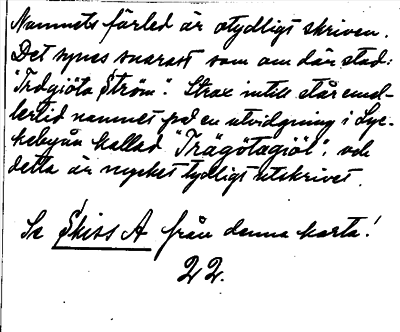 Namnets förled är otydligt skriven.
Det synes snarast som om där stod:
"Trdgiöta Ström". Strax intill står emel-
lertid namnet på en utvidgning i Lyc-
kebyån kallad "Trägötagiöl", och
detta är mycket tydligt utskrivet.
Se Skiss A från denna karta!
22.